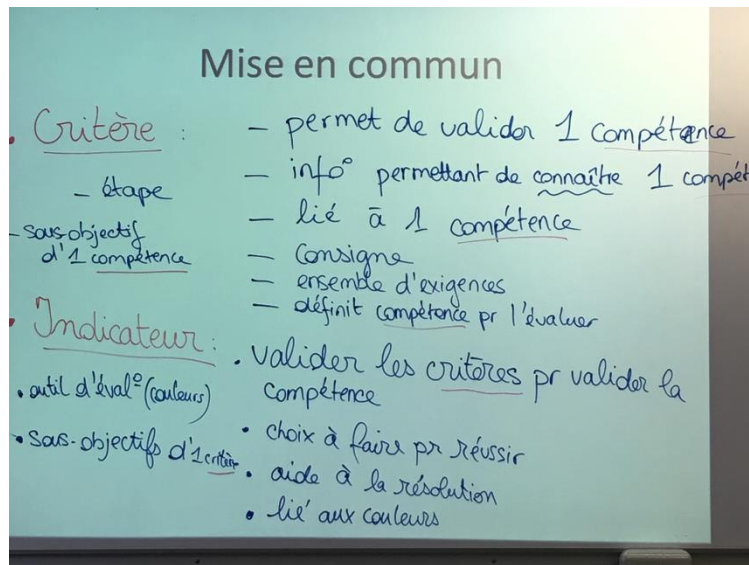 Mise en commun
• Critère :
- étape
- sous-objectif
d'1 compétence
- permet de valider 1 compétence
- info° permettant de connaître 1 compét
- lié à 1 compétence
- Consigne
- ensemble d'exigences
- définit compétence pr l'évaluer
• Indicateur :
• outil d'éval° (couleurs)
• sous-objectifs d'1 critère
• valider les critères pr valider la
compétence
• choix à faire pr réussir
• aide à la résolution
• lié aux couleurs